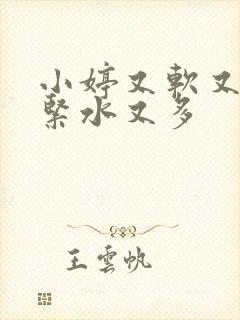 小婷又軟又
緊水又多
王雲帆